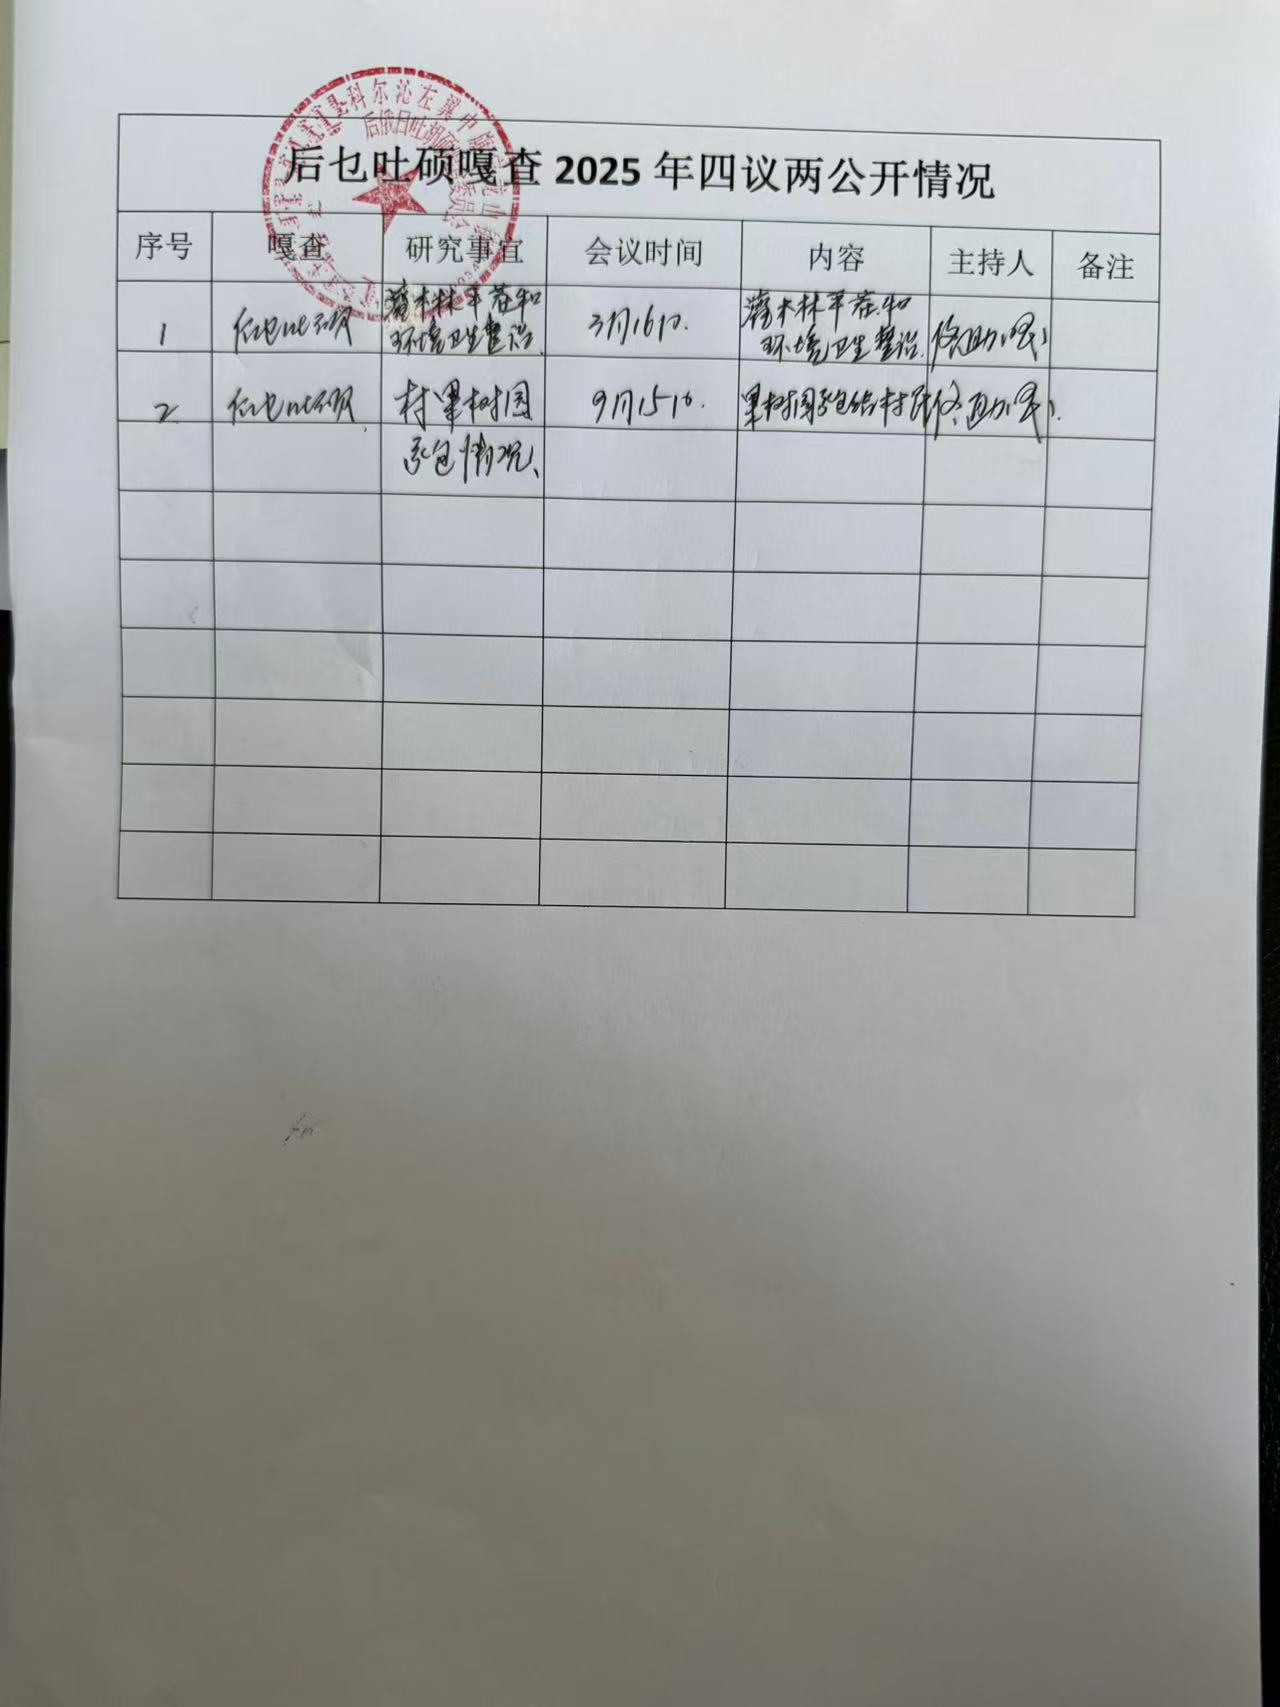 后乜吐硕嘎查 2025 年四议两公开情况
序号 嘎查 研究事宜 会议时间 内容 主持人 备注
1 后乜吐硕 灌木林平茬和 3月16日. 灌木林平茬和
环境卫生整治. 环境卫生整治.
2 后乜吐硕 村果树园 9月15日. 果树园承包给村民
承包情况、
科尔沁左翼中旗